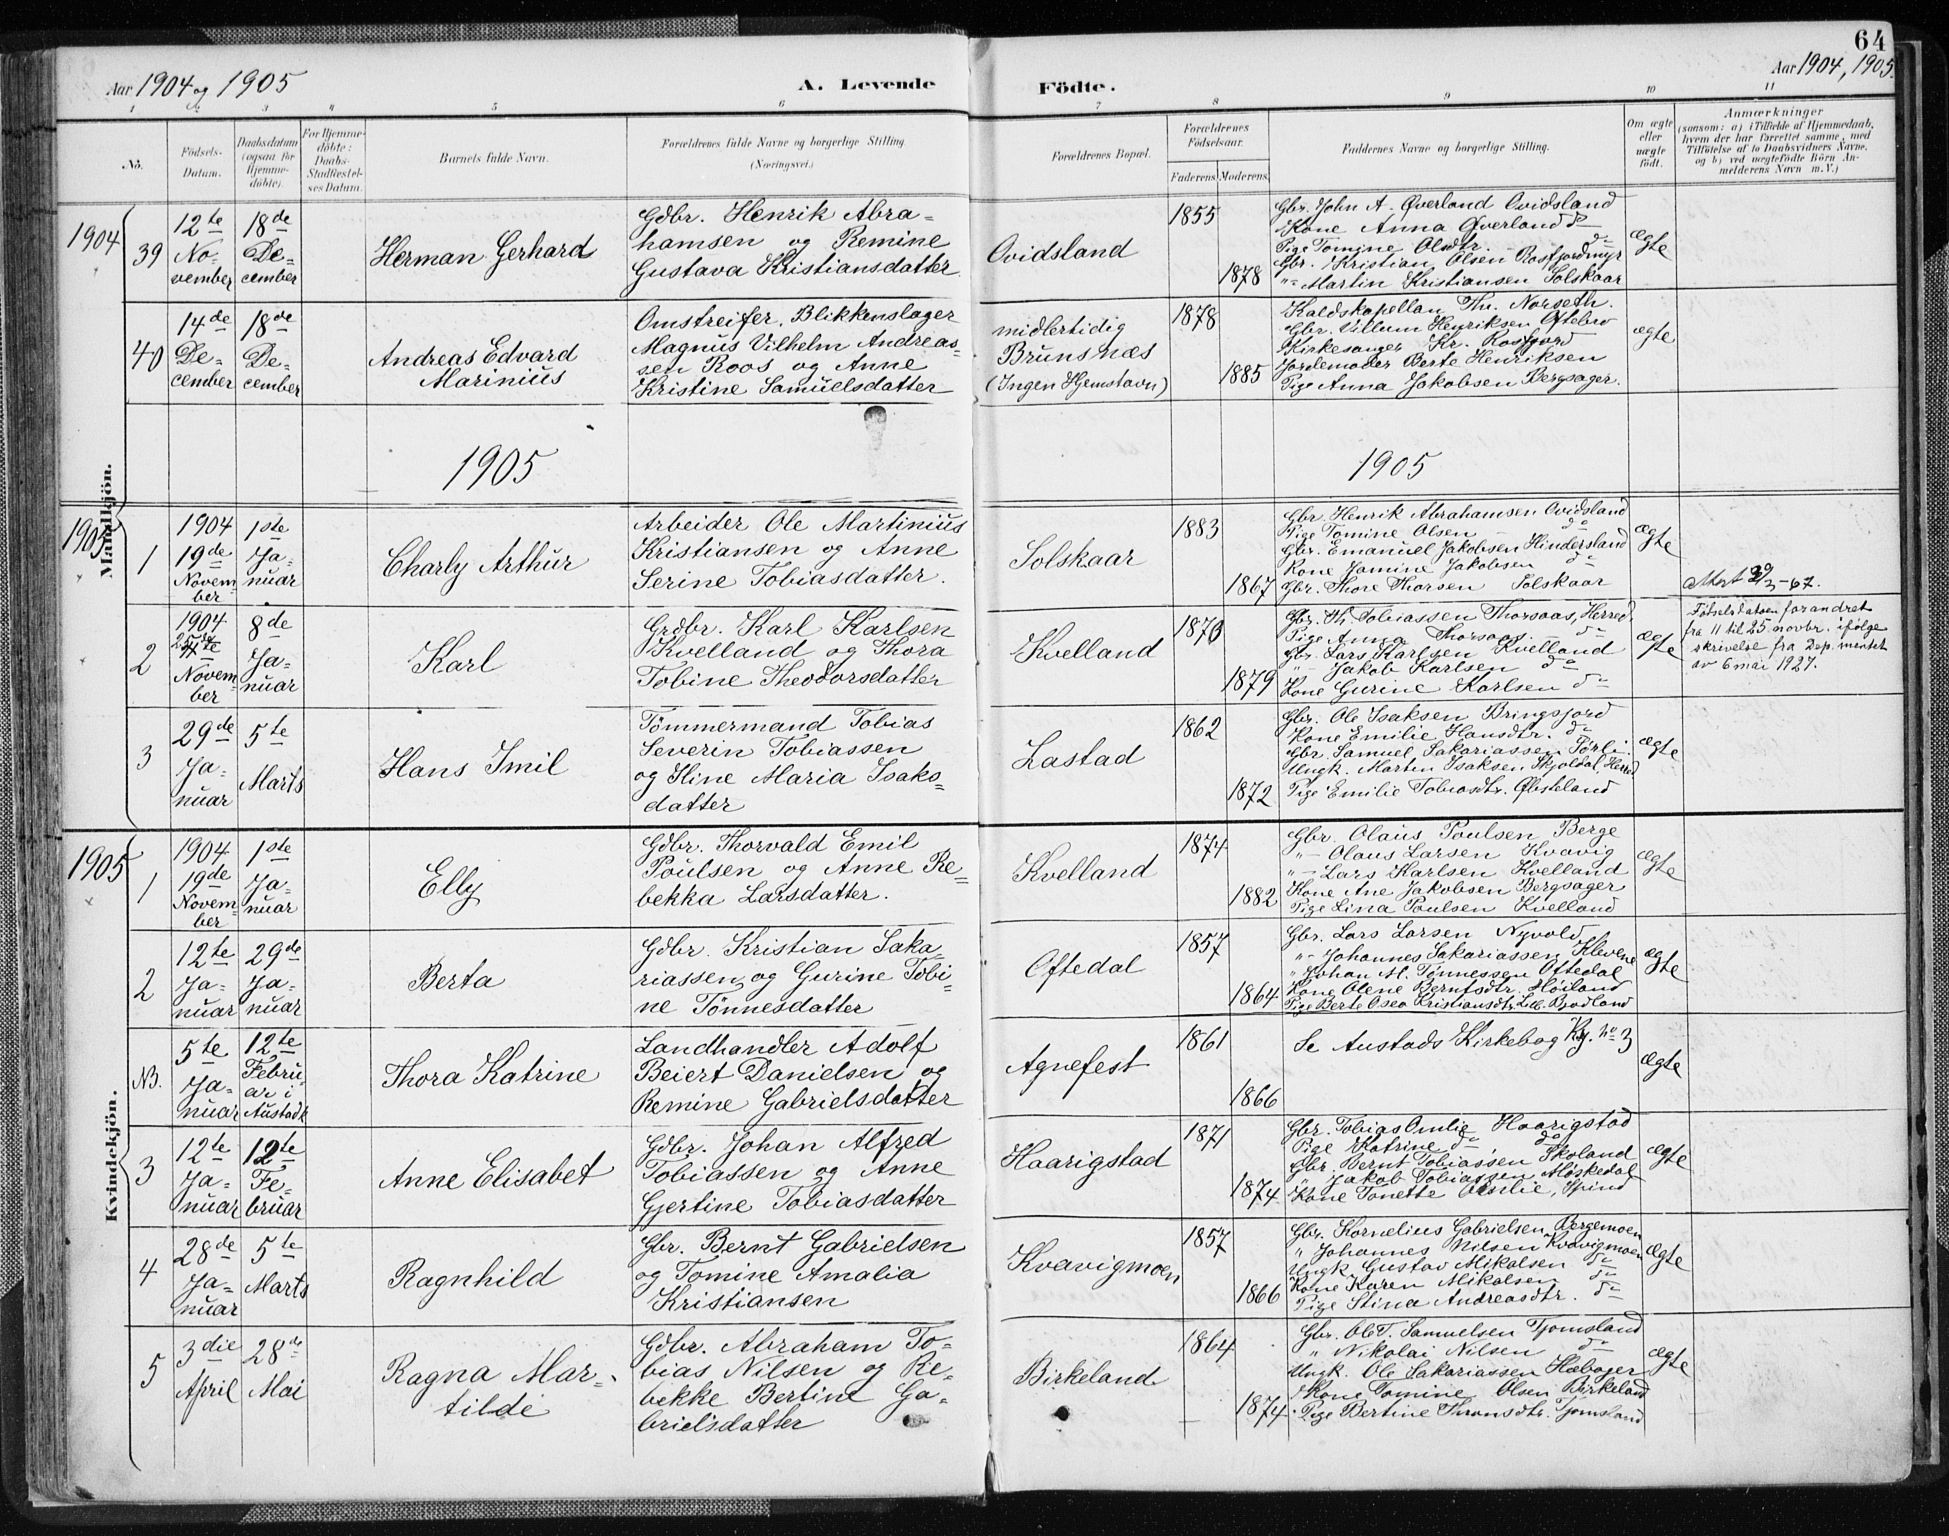 64
Aar 1904 og 1905
A. Levende
Födte.
Aar 1904, 1905.
1 2 3 4 5 6 7 8 9 10 11
No.
Födsels-
Datum.
Daabsdatum
(ogsaa for
Hjemme-
döbte).
For Hjemme-
döbte:
Daabs-
Stadfæstel-
ses Datum.
Barnets fulde Navn.
Forældrenes fulde Navne og borgerlige Stilling
(Næringsvei.)
Forældrenes Bopæl.
Forældrenes
Födselsaar.
Faderens. Moderens.
Faddernes Navne og borgerlige Stilling.
Om ægte
eller
uægte
födt.
Anmærkninger
(saasom: a) i Tilfælde af Hjemmedaab,
hvem der har forrettet samme, med
Tilföielse af to Daabsvidners Navne,
og b) ved uægtefödte Börn An-
melderens Navn m. V.)
Mandkjön.
1904
39
12te
No-
vember
18de
De-
cember
Herman Gerhard
Gdbr. Henrik Abra-
hamsen og Remine
Gustava Kristiansdatter
Ovidsland
1855
1878
Gbr. John A. Øverland Ovidsland
Kone Anna Øverland do
Pige Tomine Olsdtr. do
Gbr. Kristian Olsen Rosfjordmyr
"- Martin Kristiansen Solskaar
ægte
40
14de
De-
cember
18de
De-
cember
Andreas Edvard
Marinius
Omstreifer, Blikkenslager
Magnus Vilhelm Andreas-
sen Roos og Anne
Kristine Samuelsdatter
midlertidig
Brunsnæs
(Ingen Hjemstavn)
1878
1885
Kaldskapellan Th. Norseth.
Gbr. Villum Henriksen Øftebro
Kirkesanger Kr. Rosfjord
Jordemoder Berte Henriksen
Pige Anna Jakobsen Bergsager.
ægte
1905
1905
1905
1
1904
19de
Novem-
ber
1ste
Ja-
nuar
Charly Arthur
Arbeider Ole Martinius
Kristiansen og Anne
Serine Tobiasdatter.
Solskaar
1883
1867
Gbr. Henrik Abrahamsen Ovidsland
Pige Tomine Olsen do
Gbr. Emanuel Jakobsen Hindersland
Kone Jamine Jakobsen do
Gbr. Thore Thorsen Solskaar
ægte
2
1904
25de
Novem-
ber
8de
Ja-
nuar
Karl
Grdbr. Karl Karlsen
Kvelland og Thora
Tobine Theodorsdatter
Kvelland
1870
1879
Gbr. Th. Tobiassen Thorsaas, Herred
Pige Anna Thorsaas do
Gbr. Lars Karlsen Kvelland
"- Jakob Karlsen do
Kone Gurine Karlsen do
ægte
Fødselsdatoen forandret
fra 11 til 25 novbr. ifølge
skrivelse fra Dep. mentet
av 6 mai 1927.
3
29de
Ja-
nuar
5te
Marts
Hans Imil
Tömmermand Tobias
Severin Tobiassen
og Stine Maria Isaks-
datter
Lastad
1862
1872
Gbr. Ole Isaksen Bringsjord
Kone Emilie Hansdtr. do
Gbr. Samuel Sakariassen Törli.
Ungk. Martin Isaksen Skjoldal, Herred
Pige Emilie Tobiasdtr. Øbsteland
ægte
Kvindekjön.
1905
1
1904
19de
Novem-
ber
1ste
Ja-
nuar
Elly
Gdbr. Thorvald Emil
Poulsen og Anne Re-
bekka Larsdatter.
Kvelland
1874
1882
Gbr Olaus Poulsen Berge
"- Olaus Larsen Kvavig
"- Lars Karlsen Kvelland
Kone Ane Jakobsen Bergsager
Pige Lina Poulsen Kvelland
ægte
2
12te
Ja-
nuar
29de
Ja-
nuar
Berta
Gdbr. Kristian Saka-
riassen og Gurine Tobi-
ne Tönnesdatter
Oftedal
1857
1864
Gbr. Lars Larsen Nyvold
"- Johannes Sakariassen Klevene
"Johan M. Tønnessen Oftedal
Kone Olene Berntsdtr. Høiland
Pige Berte Osea Kristiansdtr. Lille Rjodland
ægte
NB.
5te
Ja-
nuar
12te
Febru-
ar i
Austad k
Thora Katrine
Landhandler Adolf
Beiert Danielsen og
Remine Gabrielsdatter
Agnefest
1861
1866
Se Austads Kirkebog Kj. no 3
ægte
3
12te
Ja-
nuar
12te
Fe-
bruar
Anne Elisabet
Gdbr. Johan Alfred
Tobiassen og Anne
Gjertine Tobiasdatter
Haarigstad
1871
1874
Gbr. Tobias Omlie Haarigstad
Pige Katrine do do
Gbr. Bernt Tobiassen Skoland
" Jakob Tobiassen Møskedal
Kone Tonette Oesilie, Spind
ægte
4
28de
Ja-
nuar
5te
Marts
Ragnhild
Gbr. Bernt Gabrielsen
og Tomine Amalia
Kristiansen
Kvavigmoen
1857
1866
Gbr. Kornelius Gabrielsen Bergemoen
" Johannes Nilsen Kvavigmoen
Ungk Gustav Mikalsen do
Kone Karen Mikalsen do
Pige Stina Andreasdtr. do
ægte
5
3die
April
28de
Mai
Ragna Mar-
tilde
Gdbr. Abraham To-
bias Nilsen og Re-
bekke Bertine Ga-
brielsdatter
Birkeland
1864
1874
Gbr. Ole T. Samuelsen Tjomsland
" Nikolai Nilsen do
Ungk. Ole Sakariassen Hæbager
Kone Tomine Olsen Birkeland
Pige Bertine Thronsdtr. Tjomsland
ægte